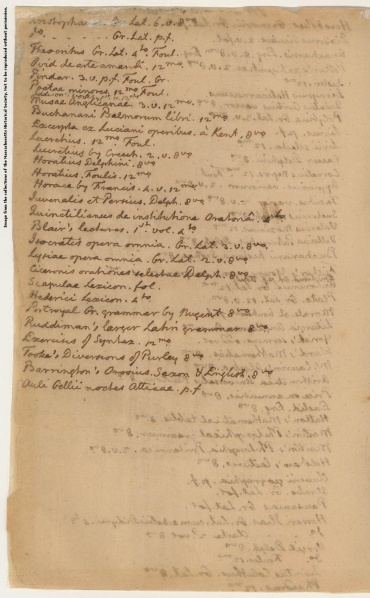 Aristophanes Gr. Lat. 6.v. 8vo
do. - - - - - Gr. Lat. p.f.
Theocritus Gr. Lat. 4to Foul.
Ovid de arte amandi. 12mo
Pindar. 3.v. p.f. Foul. Gr
Poetae minores 12mo Foul.
Musae Anglicanae. 3.v. 12mo
Buchanani Psalmorum libri. 12mo
Excerpta ex Luciani operibus a Kent. 8vo
Lucretius. 12mo Foul.
Lucretius by Creech. 2.v. 8vo
Horatius Delphini. 8vo
Horatius. Foulis. 12mo
Horace by Francis. 4.v. 12mo
Juvenalis et Persius. Delph. 8vo
Quinctilianus de institutione Oratoria. 4to
Blair's lectures. 1st vol. 4to
Isocratis opera omnia. Gr. Lat. 2.v. 8vo
Lysiae opera omnia. Gr. Lat. 2.v. 8vo
Ciceronis orationes selectae Delph. 8vo
Scapulae Lexicon. fol.
Hederici Lexicon. 4to
Portroyal Gr. grammar by Nugent 8vo
Ruddiman's larger Latin grammar 8vo
Exercises of Syntax. 12mo
Tooke's Diversions of Purley 8vo
Barrington's Orosius. Saxon & English. 8vo
Auli Gellii noctes Atticae. p.f
Image from the collections of the Massachusetts Historical Society. Not to be reproduced without permission.